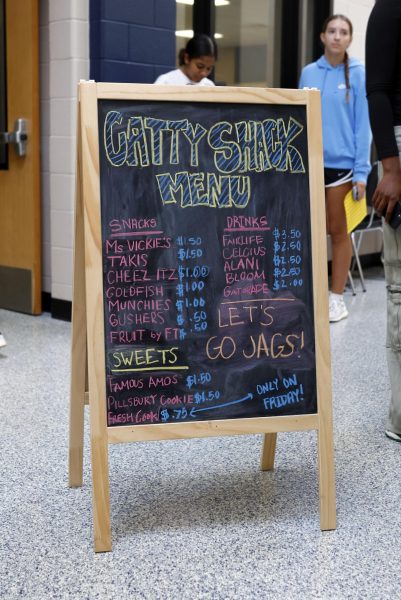 CATTY SHACK
MENU
SNACKS
MS VICKIE'S $1.50
TAKIS $1.50
CHEEZ ITZ $1.00
GOLDFISH $1.00
MUNCHIES $1.00
GUSHERS $.50
FRUIT BY FT $.50
DRINKS
FAIRLIFE $3.50
CELCIUS $2.50
ALANI $2.50
BLOOM $2.50
GATORADE $2.00
LET'S
GO JAGS!
SWEETS
FAMOUS AMOS $1.50
PILLSBURY COOKIE $1.50
FRESH COOKI $.75
ONLY ON
FRIDAY!